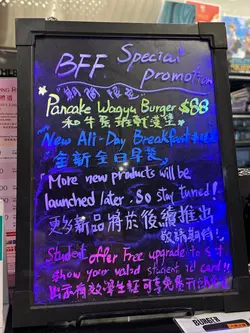 BFF Special
promotion
"期間限定"
Pancake Wagyu Burger $88
和牛班戟漢堡
New All-Day Breakfast
全新全日早餐
"More new products will be
launched later. So stay tuned!
更多新品將於後續推出
敬請期待!
Student offer Free upgrade to set
show your valid student id card!!
出示有效學生証可享免費升級
BURGER